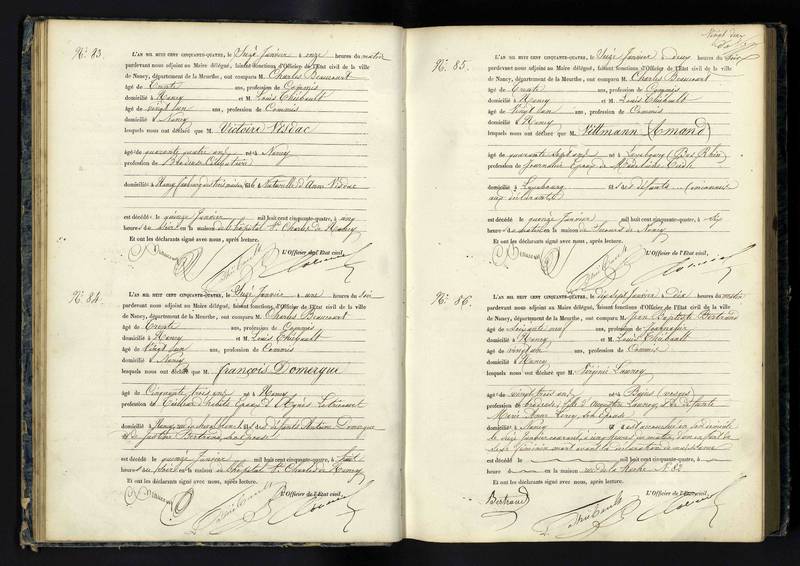 N° 83.
L'AN MIL HUIT CENT CINQUANTE-QUATRE, le Seize Janvier à onze heures du matin
pardevant nous adjoint au Maire délégué, faisant fonctions d'Officier de l'Etat civil de la ville
de Nancy, département de la Meurthe, ont comparu M. Charles Beaucourt
âgé de Trente ans, profession de Commis
domicilié à Nancy et M. Louis Thiébault
âgé de vingt un ans, profession de Commis
domicilié à Nancy
lesquels nous ont déclaré que M. Victoire Visdac
âgé de quarante quatre ans né à Nancy
profession de
domicilié à Nancy, faubourg des trois maisons, fille naturelle d'Anne Visdac
est décédé le quinze Janvier mil huit cent cinquante-quatre, à onze
heures du soir en la maison de l'hôpital St Charles de Nancy
Et ont les déclarants signé avec nous, après lecture.
L'Officier de l'Etat civil,
N° 84.
L'AN MIL HUIT CENT CINQUANTE-QUATRE, le Seize Janvier à une heures du Soir
pardevant nous adjoint au Maire délégué, faisant fonctions d'Officier de l'Etat civil de la ville
de Nancy, département de la Meurthe, ont comparu M. Charles Beaucourt
âgé de Trente ans, profession de Commis
domicilié à Nancy et M. Louis Thiébault
âgé de Vingt un ans, profession de Commis
domicilié à Nancy
lesquels nous ont déclaré que M. françois Domergue
âgé de Cinquante trois ans né à Nancy
profession de Tailleur d'habits Epoux d'Agnès
domicilié à Nancy,
et de Justine Bertrand, son Epouse
est décédé le quinze Janvier mil huit cent cinquante-quatre, à huit
heures du soir en la maison de l'hôpital St Charles de Nancy
Et ont les déclarants signé avec nous, après lecture.
L'Officier de l'Etat civil,
Thiébault
Vingt deux
N° 85.
L'AN MIL HUIT CENT CINQUANTE-QUATRE, le Seize Janvier à deux heures du Soir
pardevant nous adjoint au Maire délégué, faisant fonctions d'Officier de l'Etat civil de la ville
de Nancy, département de la Meurthe, ont comparu M. Charles Beaucourt
âgé de Trente ans, profession de Commis
domicilié à Nancy et M. Louis Thiébault
âgé de Vingt un ans, profession de Commis
domicilié à Nancy
lesquels nous ont déclaré que M. Villmann (Amand)
âgé de quarante sept ans né à (Bas Rhin)
profession de Journalier Epoux de Madelaine
domicilié à fils des défunts (inconnus
aux déclarants)
est décédé le quinze Janvier mil huit cent cinquante-quatre, à dix
heures du matin en la maison de secours de Nancy
Et ont les déclarants signé avec nous, après lecture.
L'Officier de l'Etat civil,
Thiébault
N° 86.
L'AN MIL HUIT CENT CINQUANTE-QUATRE, le dix sept Janvier à Dix heures du matin
pardevant nous adjoint au Maire délégué, faisant fonctions d'Officier de l'Etat civil de la ville
de Nancy, département de la Meurthe, ont comparu M. Jean Baptiste Bertrand
âgé de Soixante neuf ans, profession de Journalier
domicilié à Nancy et M. Louis Thiébault
âgé de vingt un ans, profession de Commis
domicilié à Nancy
lesquels nous ont déclaré que M. Virginie
âgé de vingt trois ans né à (vosges)
profession de brodeuse, fille d'Augustin
Marie Anne Leroy, son Epouse
domicilié à Nancy est accouchée en son domicile
le seize Janvier courant, à cinq heures du matin, d'un enfant du
sexe féminin mort avant la déclaration de naissance
est décédé le mil huit cent cinquante-quatre, à
heures en la maison rue de la Hache N° 82
Et ont les déclarants signé avec nous, après lecture.
L'Officier de l'Etat civil,
Bertrand
Thiébault